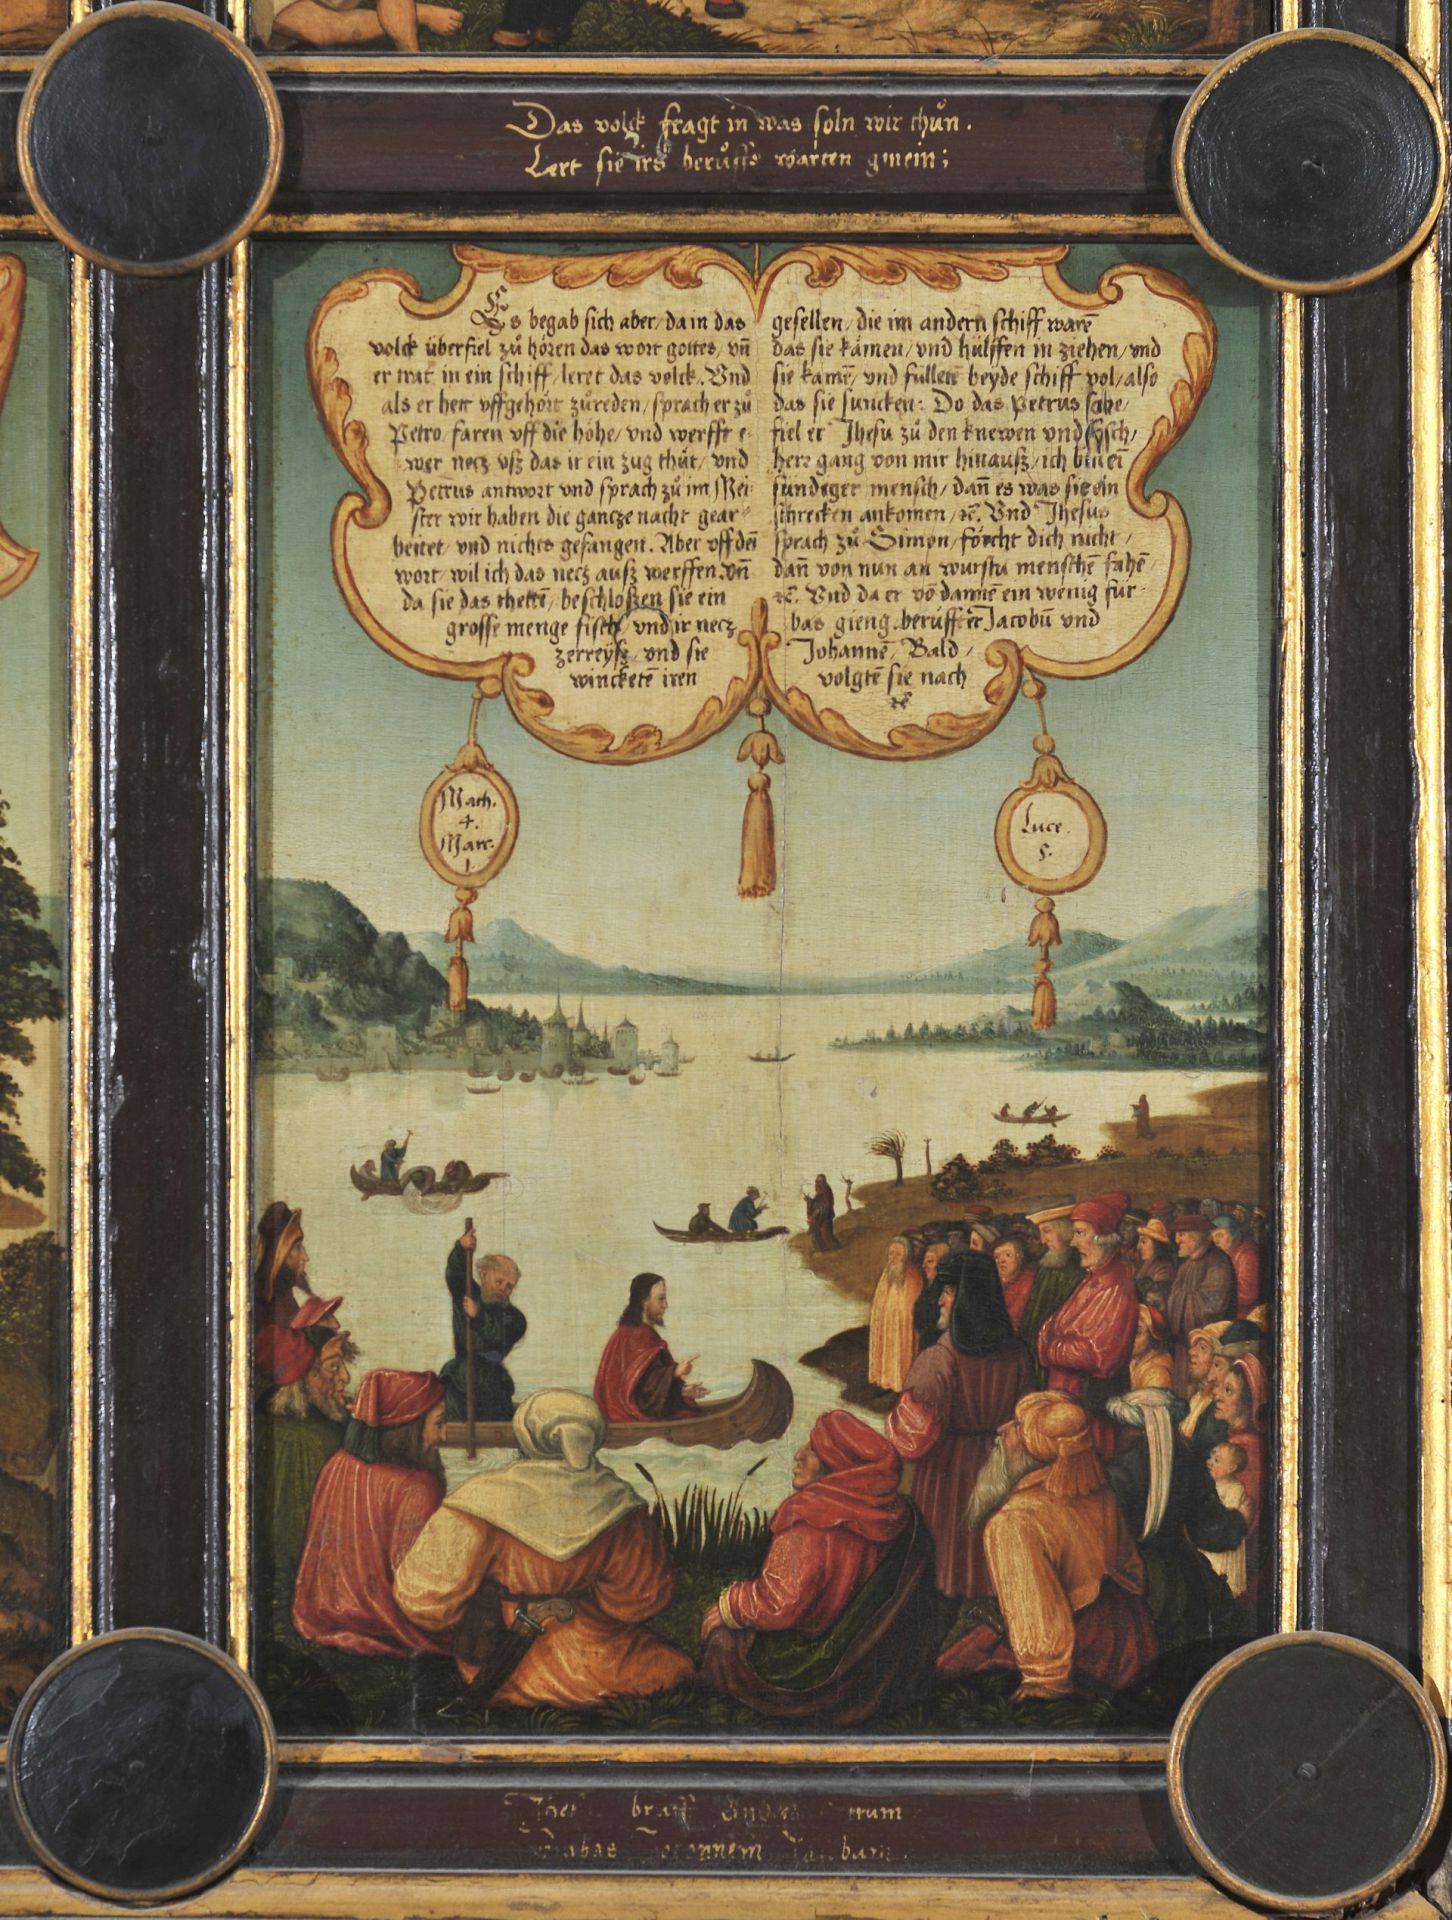 Das volck fragt in was soln wir thůn.
Lert sie irs berůffs warten gmein;
Es begab sich aber/ da in das
volck überfiel zů hören das wort gottes/ vn̄
er trat in ein schiff/ leret das volck. Vnd
als er hett vffgehört zůreden/ sprach er zů
Petro/ faren vff die höhe/ vnd werfft e-
wer netz vsz das ir ein zug thůt/ vnd
Petrus antwort vnd sprach zů im Mei-
ster wir haben die gantze nacht gear-
beitet/ vnd nichts gefangen. Aber vff dein
wort/ wil ich das netz ausz werffen. vn̄
da sie das thettē/ beschloszen sie ein
grosse menge fisch/ vnd ir netz
zerreysz/ vnd sie
wincketē iren
gesellen/ die im andern schiff warē
das sie kämen/ vnd hülffen in ziehen/ vnd
sie kamē/ vnd fülletē beyde schiff vol/ also
das sie suncken: Do das Petrus sahe/
fiel er Jhesu zů den knewen vnd sprach/
herr gang von mir hinausz/ ich bin ei
sündiger mensch/ dan̄ es was sie ein
schrecken ankomen/ ꝛc. Vnd Jhesus
sprach zů Simon/ förcht dich nicht/
dan̄ von nun an wurstu menschē fahē/
ꝛc. Vnd da er vō dannē ein wenig für-
bas gieng. berůfft er Jacobū vnd
Johannē/ Bald/
volgtē sie nach
ꝛc
Math.
4.
Marc.
1.
Luce.
5.